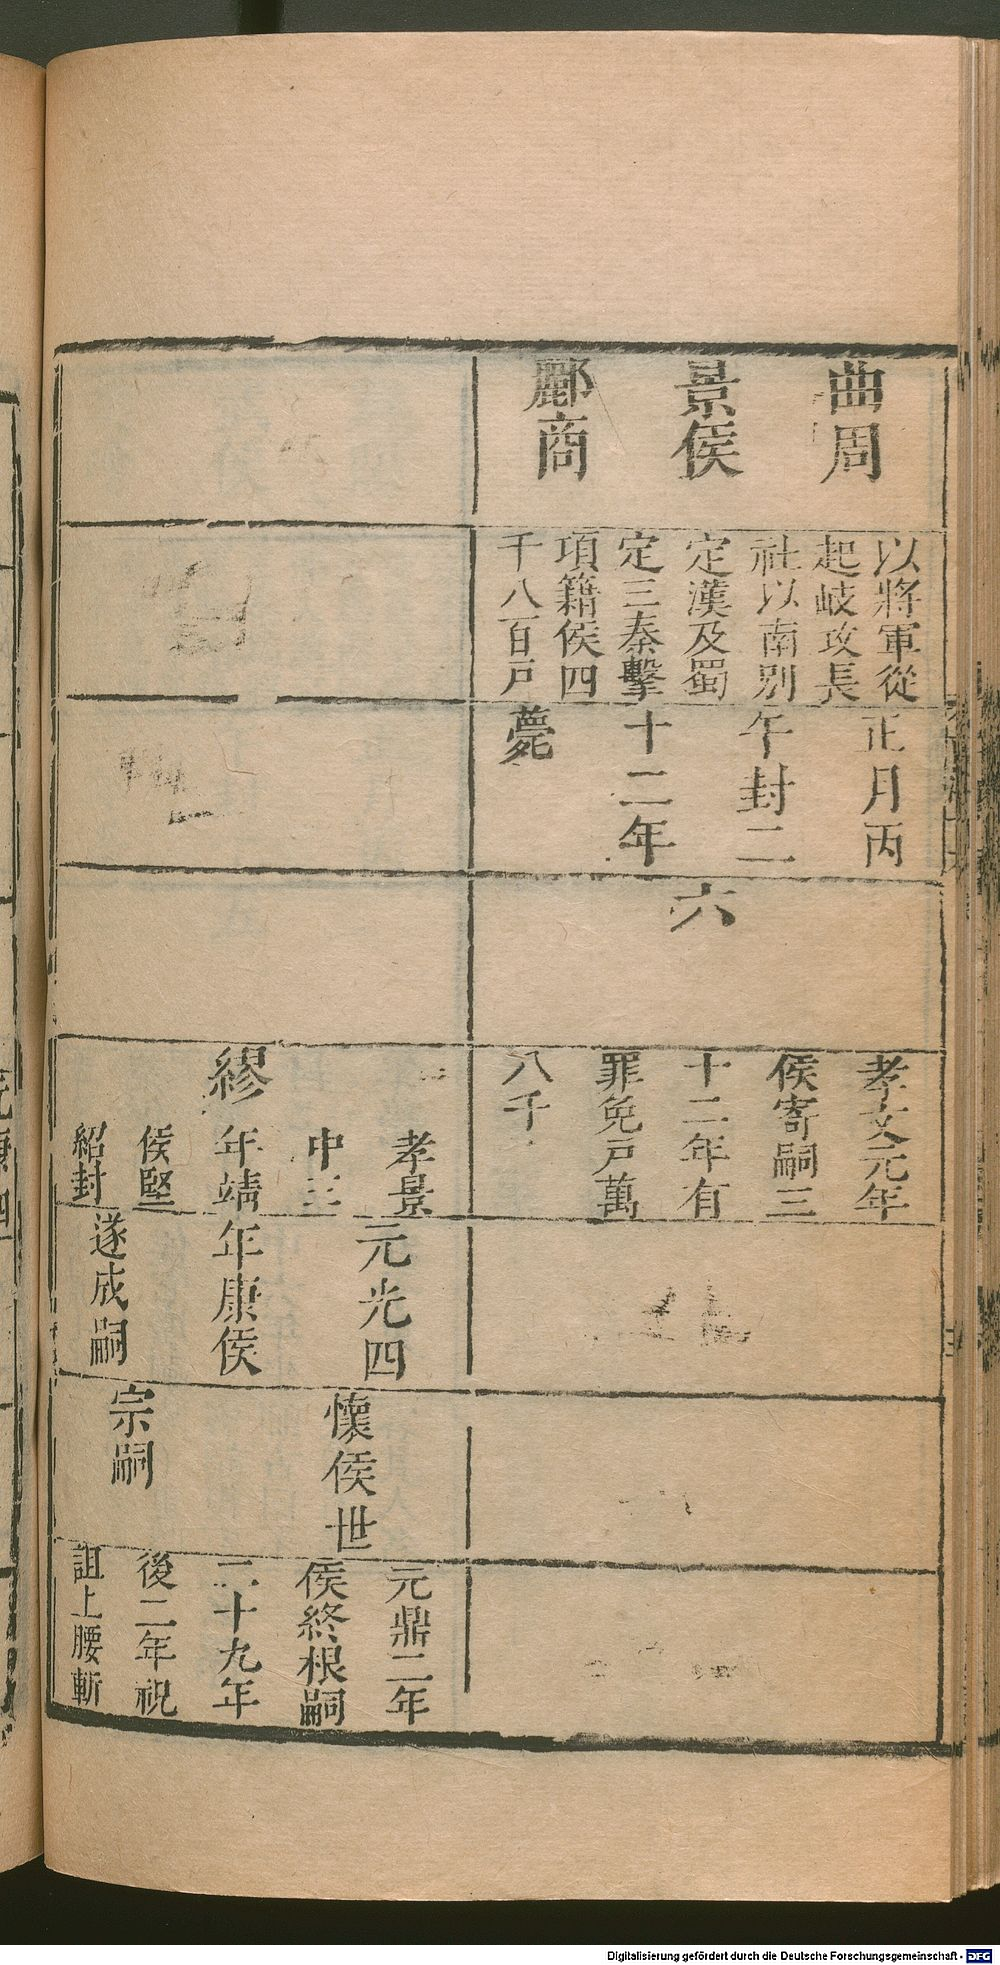 曲周
景侯
酈商
以將軍從
起岐攻長
社以南別
定漢及蜀
定三秦擊
項籍侯四
千八百戶
正月丙
午封二
十二年
薨
六
孝文元年
侯寄嗣三
十二年有
罪免戶萬
八千
繆
孝景
中三
年靖
侯堅
紹封
元光四
年康侯
遂成嗣
懷侯世
宗嗣
元鼎二年
侯終根嗣
二十九年
後二年祝
詛上腰斬
Digitalisierung gefördert durch die Deutsche Forschungsgemeinschaft - DFG